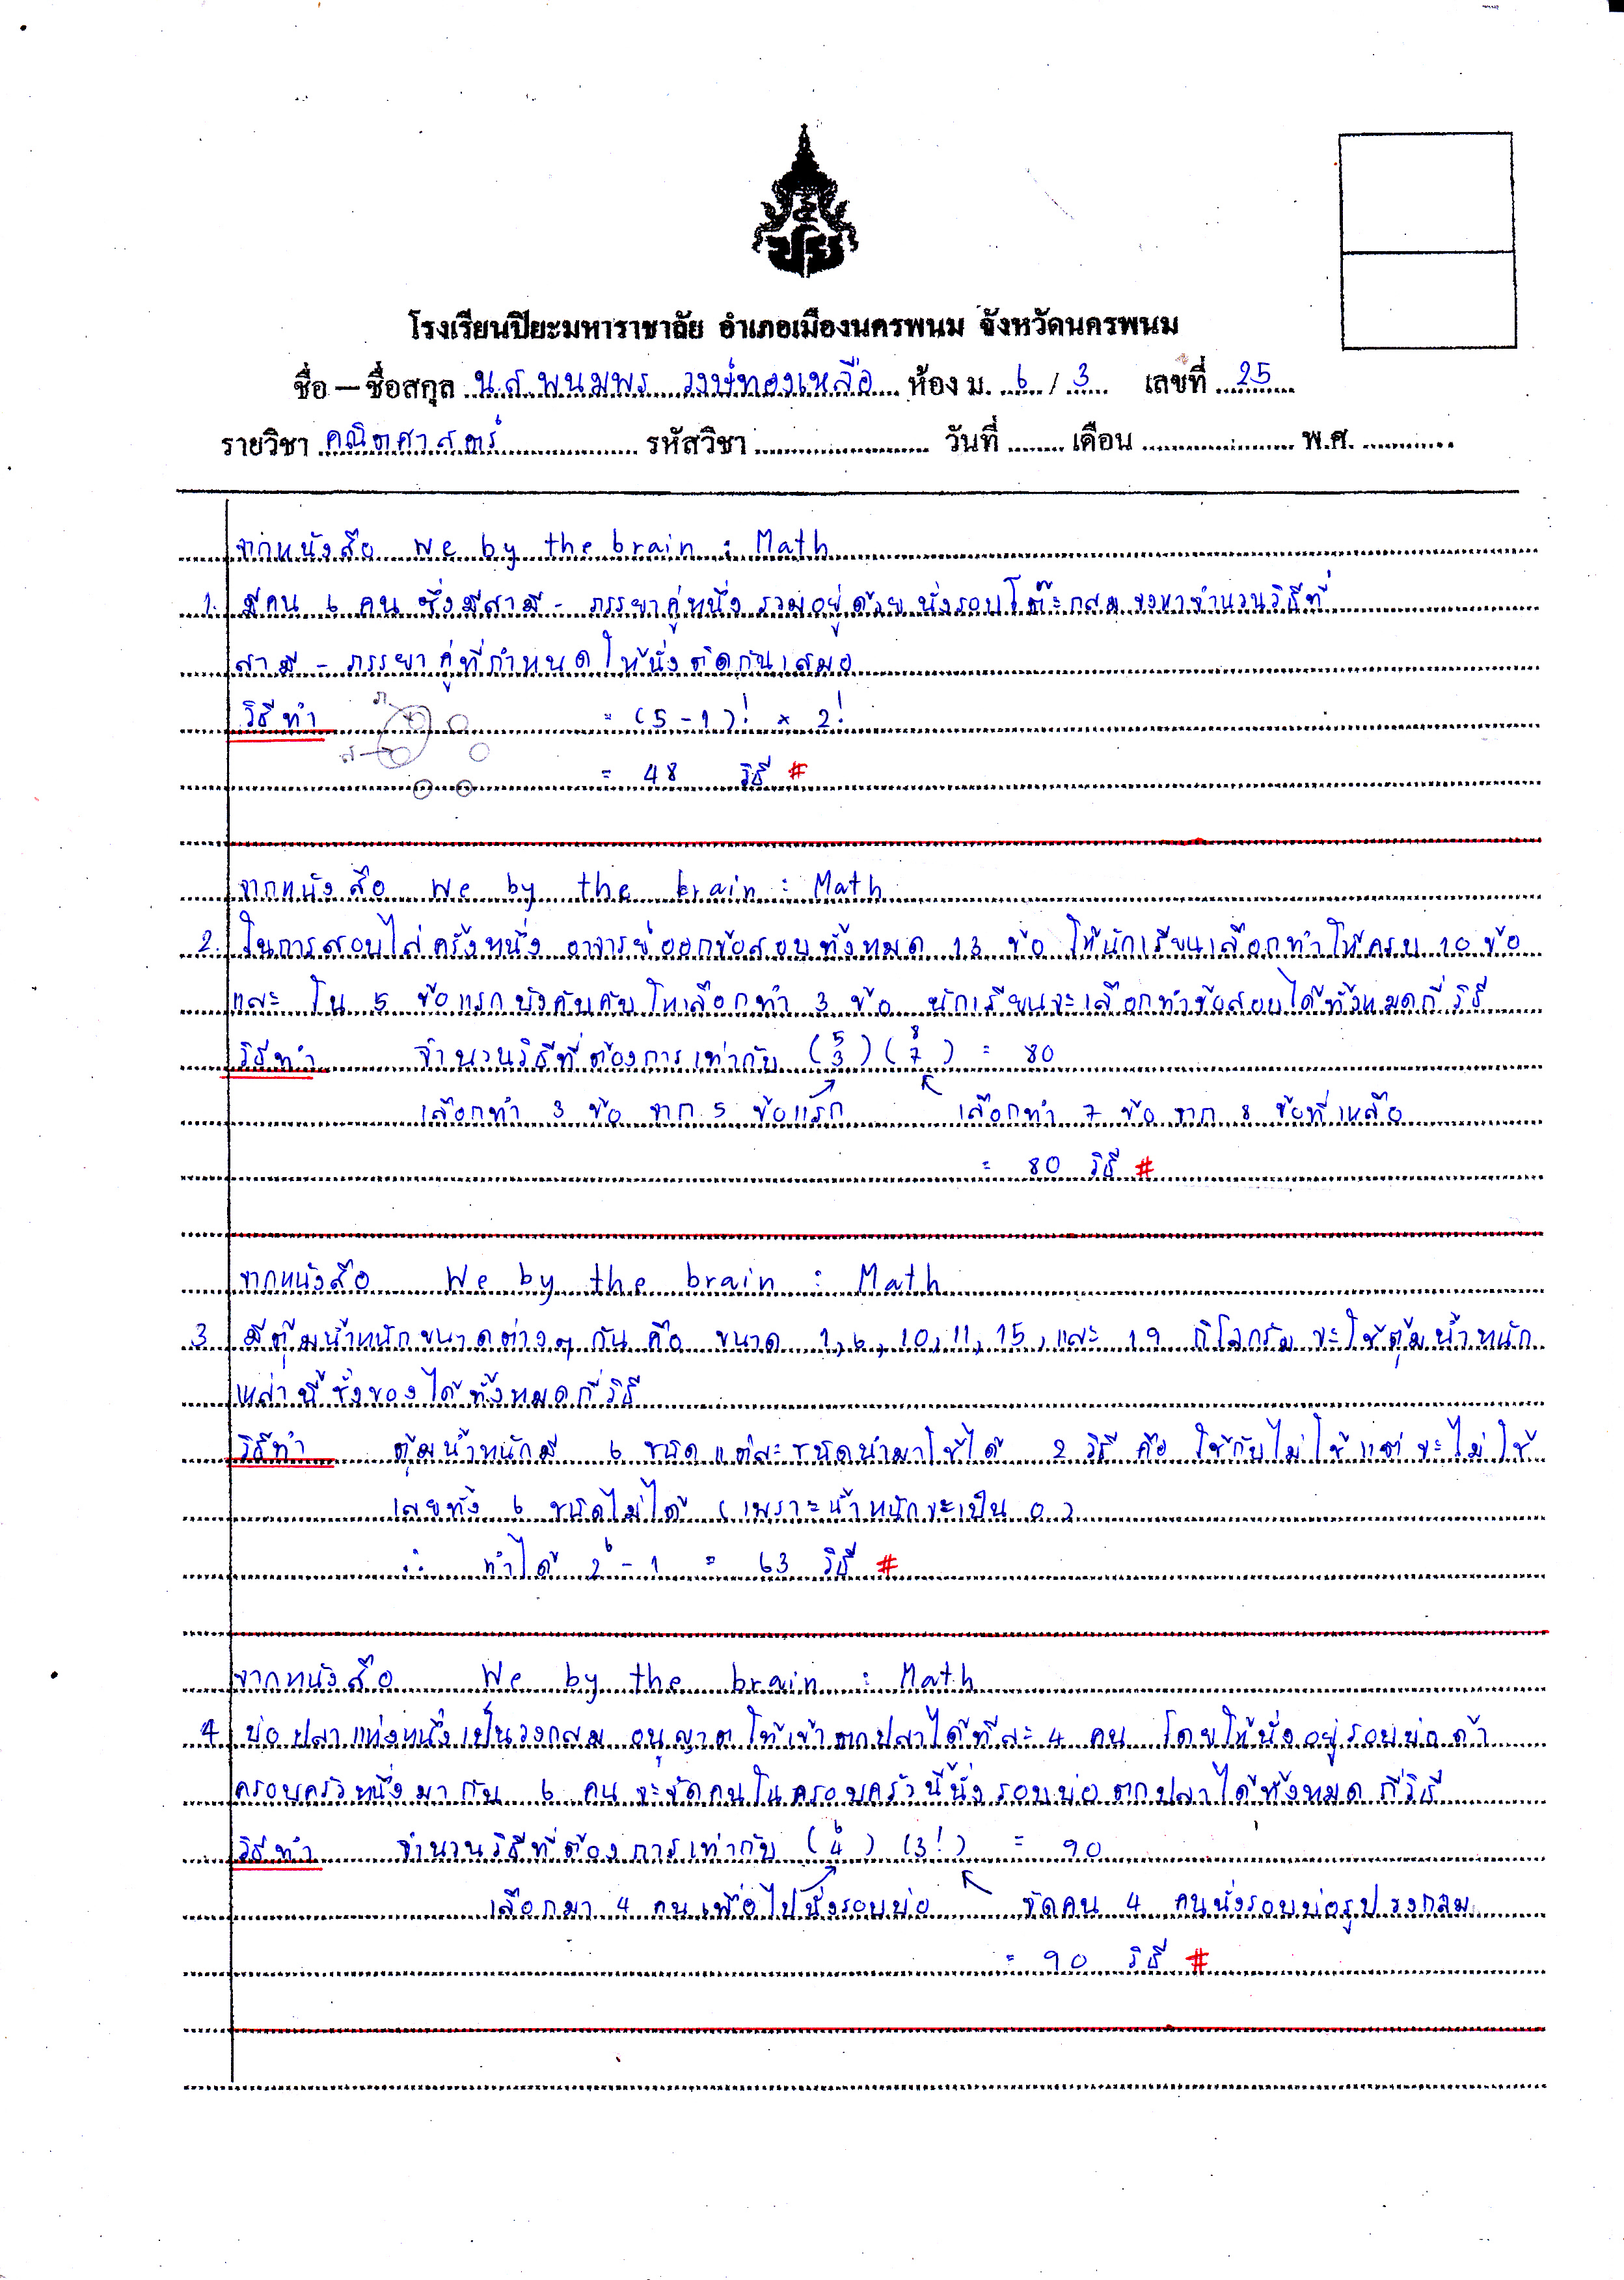 โรงเรียนปิยะมหาราชาลัย อำเภอเมืองนครพนม จังหวัดนครพนม
ชื่อ – ชื่อสกุล น.ส.พนมพร วงษ์ทองเหลือ ห้อง ม. 6 / 3 เลขที่ 25
รายวิชา คณิตศาสตร์ รหัสวิชา วันที่ เดือน พ.ศ.
จากหนังสือ We by the brain : Math
1. มีคน 6 คน ซึ่งมีสามี - ภรรยาคู่หนึ่ง รวมอยู่ด้วย นั่งรอบโต๊ะกลม จงหาจำนวนวิธีที่
สามี - ภรรยา คู่ที่กำหนดให้นั่งติดกันเสมอ
วิธีทำ ภ = (5 - 1)! × 2!
ส
= 48 วิธี #
จากหนังสือ We by the brain : Math
2. ในการสอบไล่ครั้งหนึ่ง อาจารย์ออกข้อสอบทั้งหมด 13 ข้อ ให้นักเรียนเลือกทำให้ครบ 10 ข้อ
และ ใน 5 ข้อแรกบังคับคับให้เลือกทำ 3 ข้อ นักเรียนจะเลือกทำข้อสอบได้ทั้งหมดกี่วิธี
วิธีทำ จำนวนวิธีที่ต้องการเท่ากับ (5 3) (8 7) = 80
เลือกทำ 3 ข้อ จาก 5 ข้อแรก เลือกทำ 7 ข้อ จาก 8 ข้อที่เหลือ
= 80 วิธี #
จากหนังสือ We by the brain : Math
3 มีตุ้มน้ำหนักขนาดต่างๆ กัน คือ ขนาด 1, 6, 10, 11, 15, และ 19 กิโลกรัม จะใช้ตุ้มน้ำหนัก
เหล่านี้ ชั่งของได้ทั้งหมดกี่วิธี
วิธีทำ ตุ้มน้ำหนักมี 6 ชนิด แต่ละชนิดนำมาใช้ได้ 2 วิธี คือ ใช้กับไม่ใช้ แต่จะไม่ใช้
เลยทั้ง 6 ชนิดไม่ได้ (เพราะน้ำหนักจะเป็น 0)
∴ ทำได้ 2⁶ - 1 = 63 วิธี #
จากหนังสือ We by the brain : Math
4 บ่อปลาแห่งหนึ่งเป็นวงกลม อนุญาตให้เข้าตกปลาได้ทีละ 4 คน โดยให้นั่งอยู่รอบบ่อ ถ้า
ครอบครัวหนึ่งมากัน 6 คน จะจัดคนในครอบครัวนี้นั่งรอบบ่อตกปลาได้ทั้งหมดกี่วิธี
วิธีทำ จำนวนวิธีที่ต้องการเท่ากับ (6 4) (3!) = 90
เลือกมา 4 คนเพื่อไปนั่งรอบบ่อ จัดคน 4 คนนั่งรอบบ่อรูปวงกลม
= 90 วิธี #